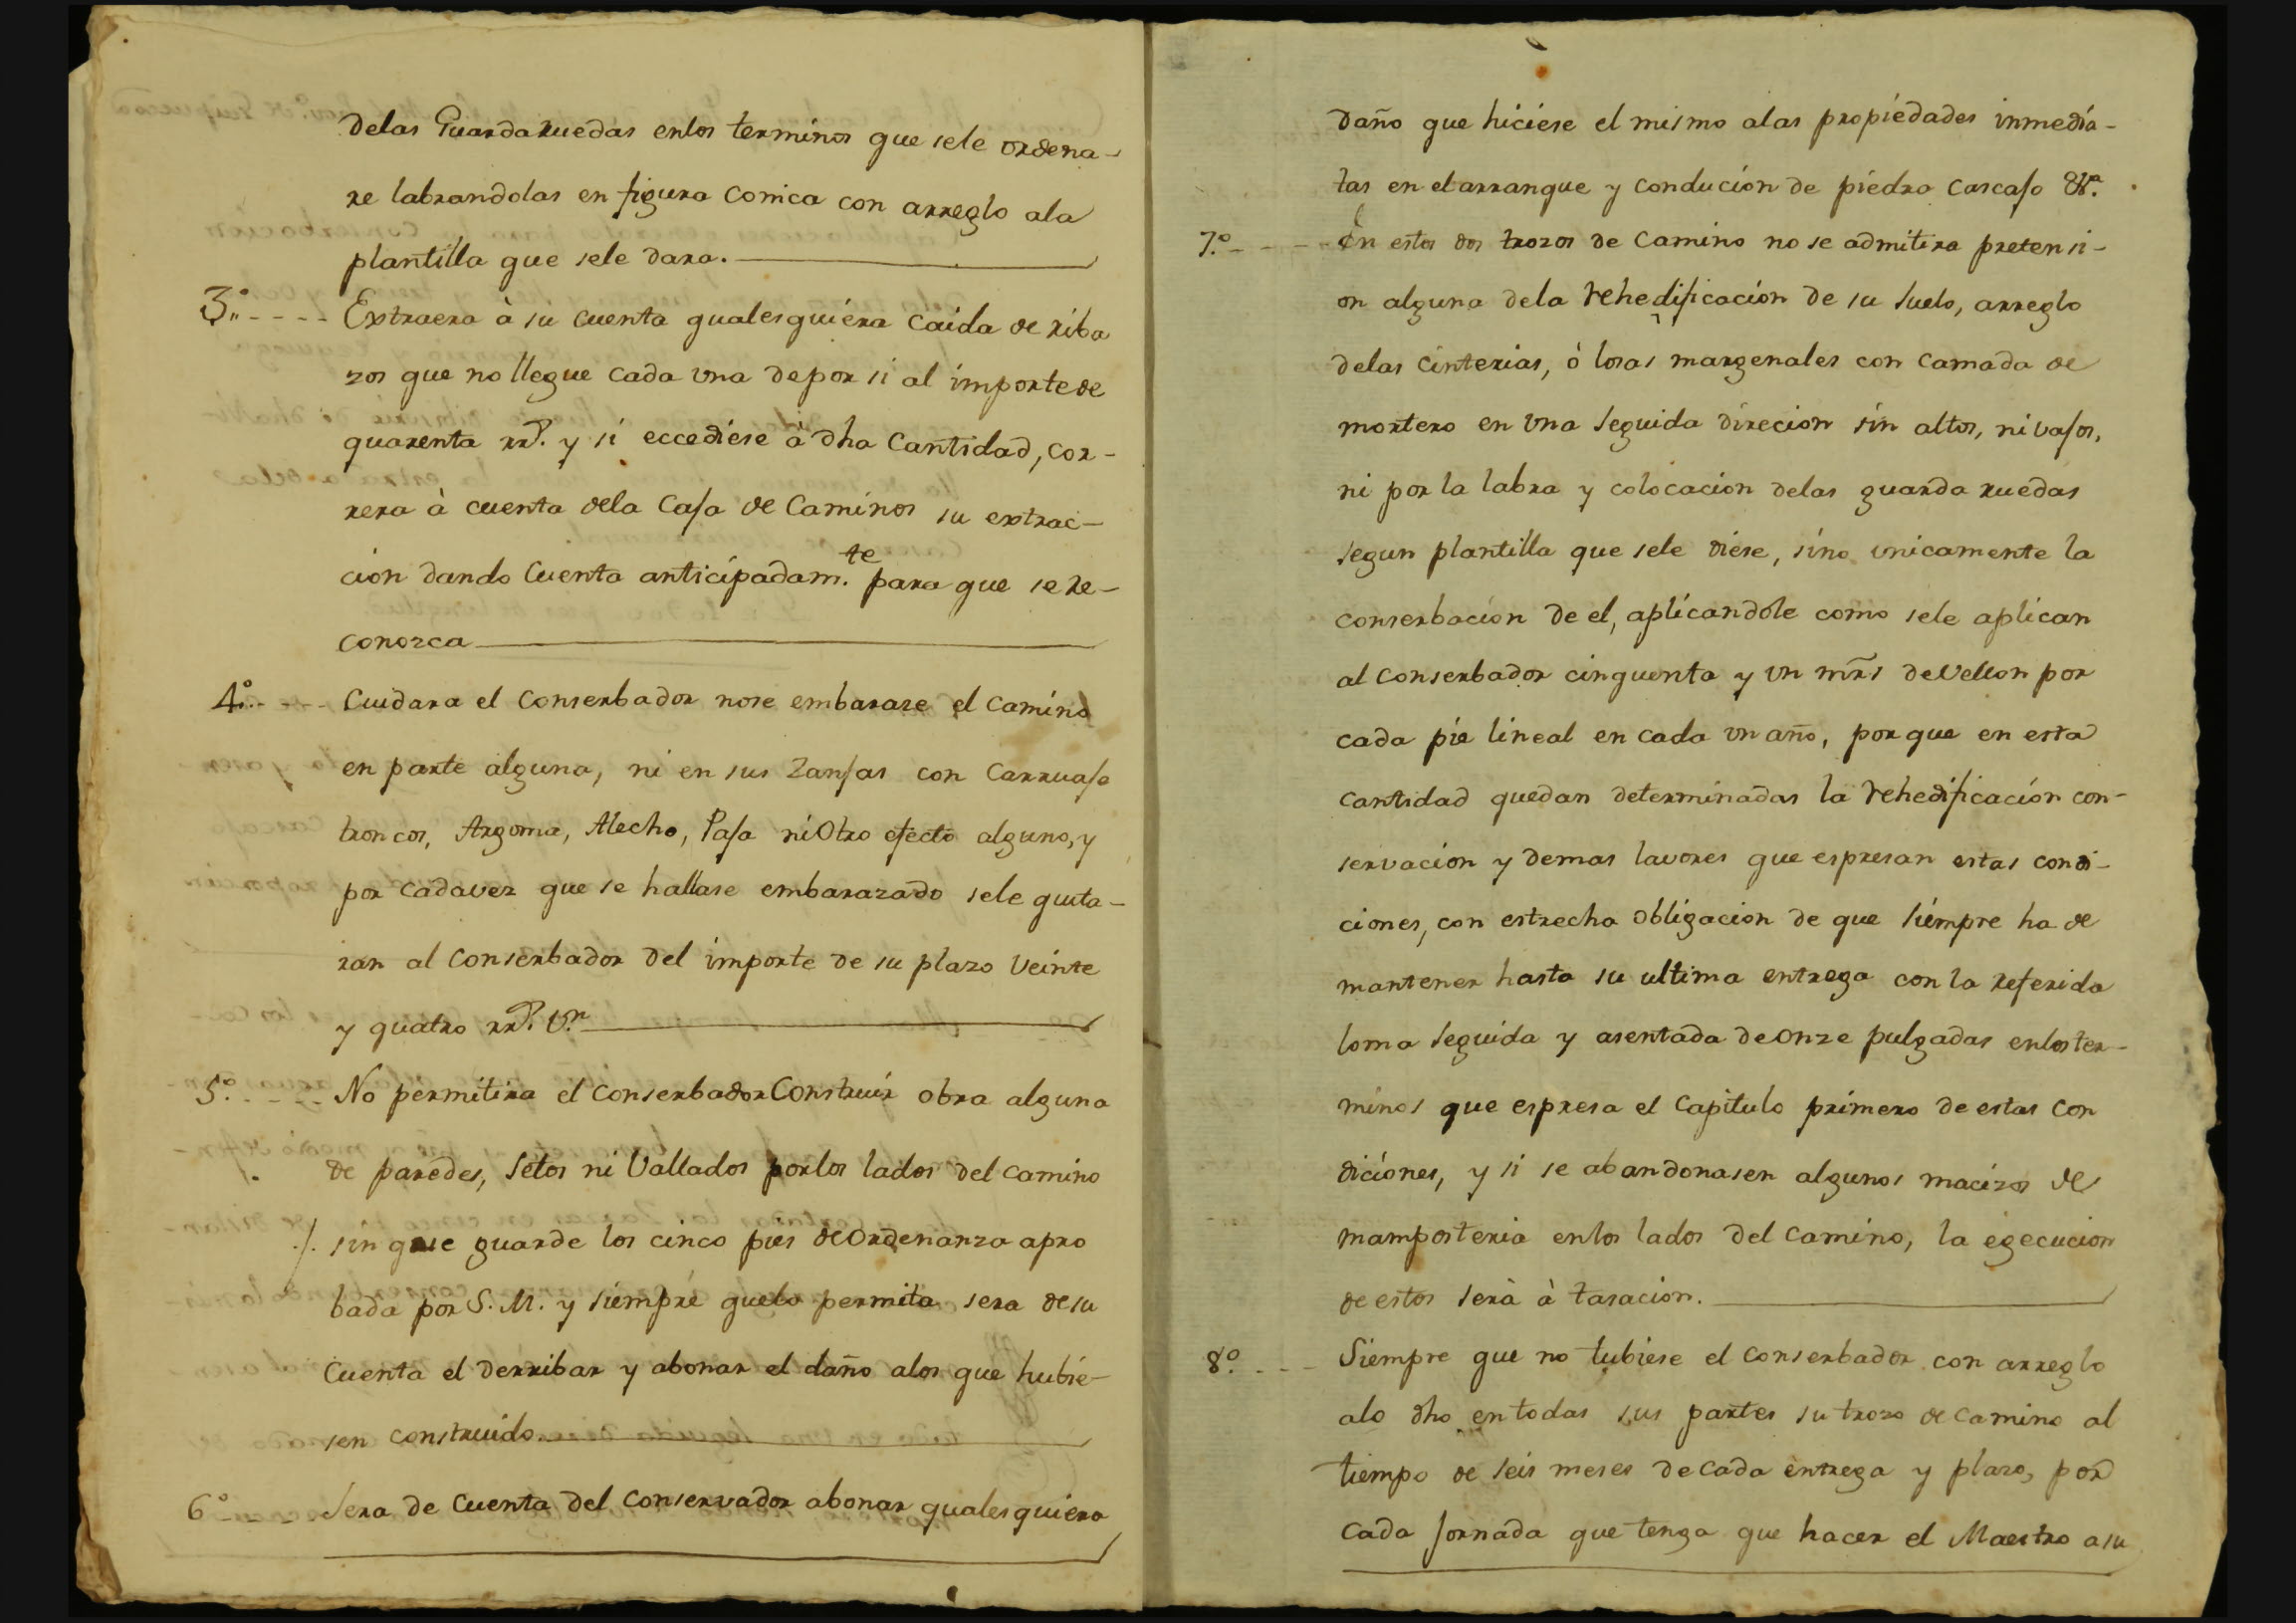 delas Guardaruedas enlos terminos que sele ordena-
re labrandolas en figura conica con arreglo ala
plantilla que sele dara.
3.º Extraera à su cuenta qualesquiera caida de riba
zos que no llegue cada vna depor si al importe de
quarenta rr.^s y si eccediese à dha Cantidad, cor-
rera à cuenta dela Casa de Caminos su extrac-
cion dando Cuenta anticipadam.te para que se re-
conozca
4.º Cuidara el Conserbador nose embarase el Camino
en parte alguna, ni en sus Zanjas con Carruaje
troncos, Argoma, Alecho, Paja ni Otro efecto alguno, y
por cadavez que se hallare embarazado sele quita-
ran al Conserbador del importe de su plazo Veinte
y quatro rr.^s V.n
5.º No permitira el Conserbador Construir obra alguna
de paredes, Setos ni Vallados porlos lados del camino
sin que guarde los cinco pies de Ordenanza apro
bada por S. M. y siempre quelo permita sera de su
Cuenta el derribar y abonar el daño alos que hubie-
sen construido.
6.º Sera de Cuenta del Conservador abonar qualesquiera
daño que hiciese el mismo alas propiedades inmedia-
tas en el arranque y condución de piedra cascajo &.a
7.º En estos dos trozos de Camino no se admitira pretensi-
on alguna dela rehedificación de su Suelo, arreglo
delas Cinterias, ò losas margenales con Camada de
mortero en vna Seguida direcion sin altos, ni vajos,
ni por la labra y colocacion delas guarda ruedas
segun plantilla que sele diese, sino unicamente la
conserbación de el, aplicandole como sele aplican
al Conserbador cinquenta y un mrs de Vellon por
cada pie lineal en cada un año, por que en esta
cantidad quedan determinadas la rehedificación con-
servacion y demas lavores que espresan estas condi-
ciones, con estrecha Obligacion de que Siempre ha de
mantener hasta su ultima entrega con la referida
loma Seguida y asentada de Onze pulgadas enlos ter-
minos que espresa el Capitulo primero de estas Con
diciónes, y si se abandonasen algunos macizos de
mamposteria enlos lados del Camino, la egecucion
de estos serà à tasacion.
8.º Siempre que no tubiese el Conserbador con arreglo
alo dho entodas sus partes su trozo de Camino al
tiempo de Seis meses de cada entrega y plazo, por
Cada Jornada que tenga que hacer el Maestro a su